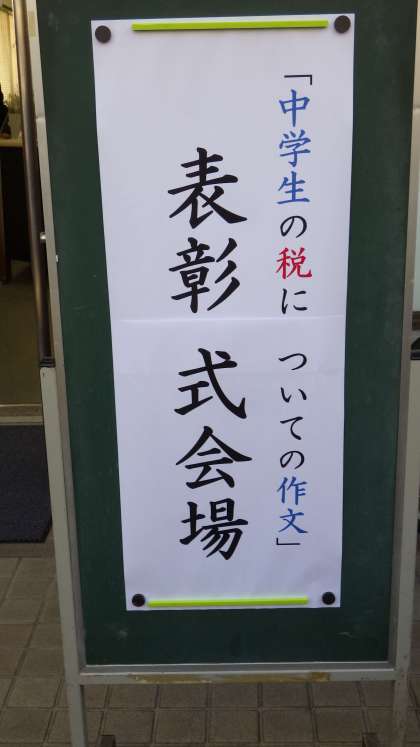 「中学生の税に ついての作文」
表彰式会場